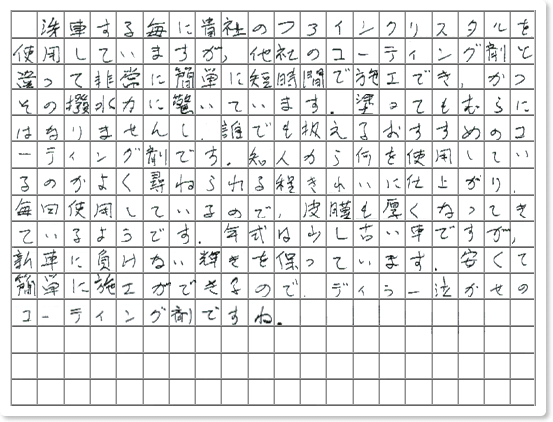 洗車する毎に貴社のファインクリスタルを
使用していますが,他社のコーティング剤と
違って非常に簡単に短時間で施工でき,かつ
その撥水力に驚いています.塗ってもむらに
はなりませんし,誰でも扱えるおすすめのコ
ーティング剤です.知人から何を使用してい
るのかよく尋ねられる程きれいに仕上がり,
毎回使用しているので,皮膜も厚くなってき
ているようです.年式は少し古い車ですが,
新車に負けない輝きを保っています.安くて
簡単に施工ができるので,ディラー泣かせの
コーティング剤ですね.